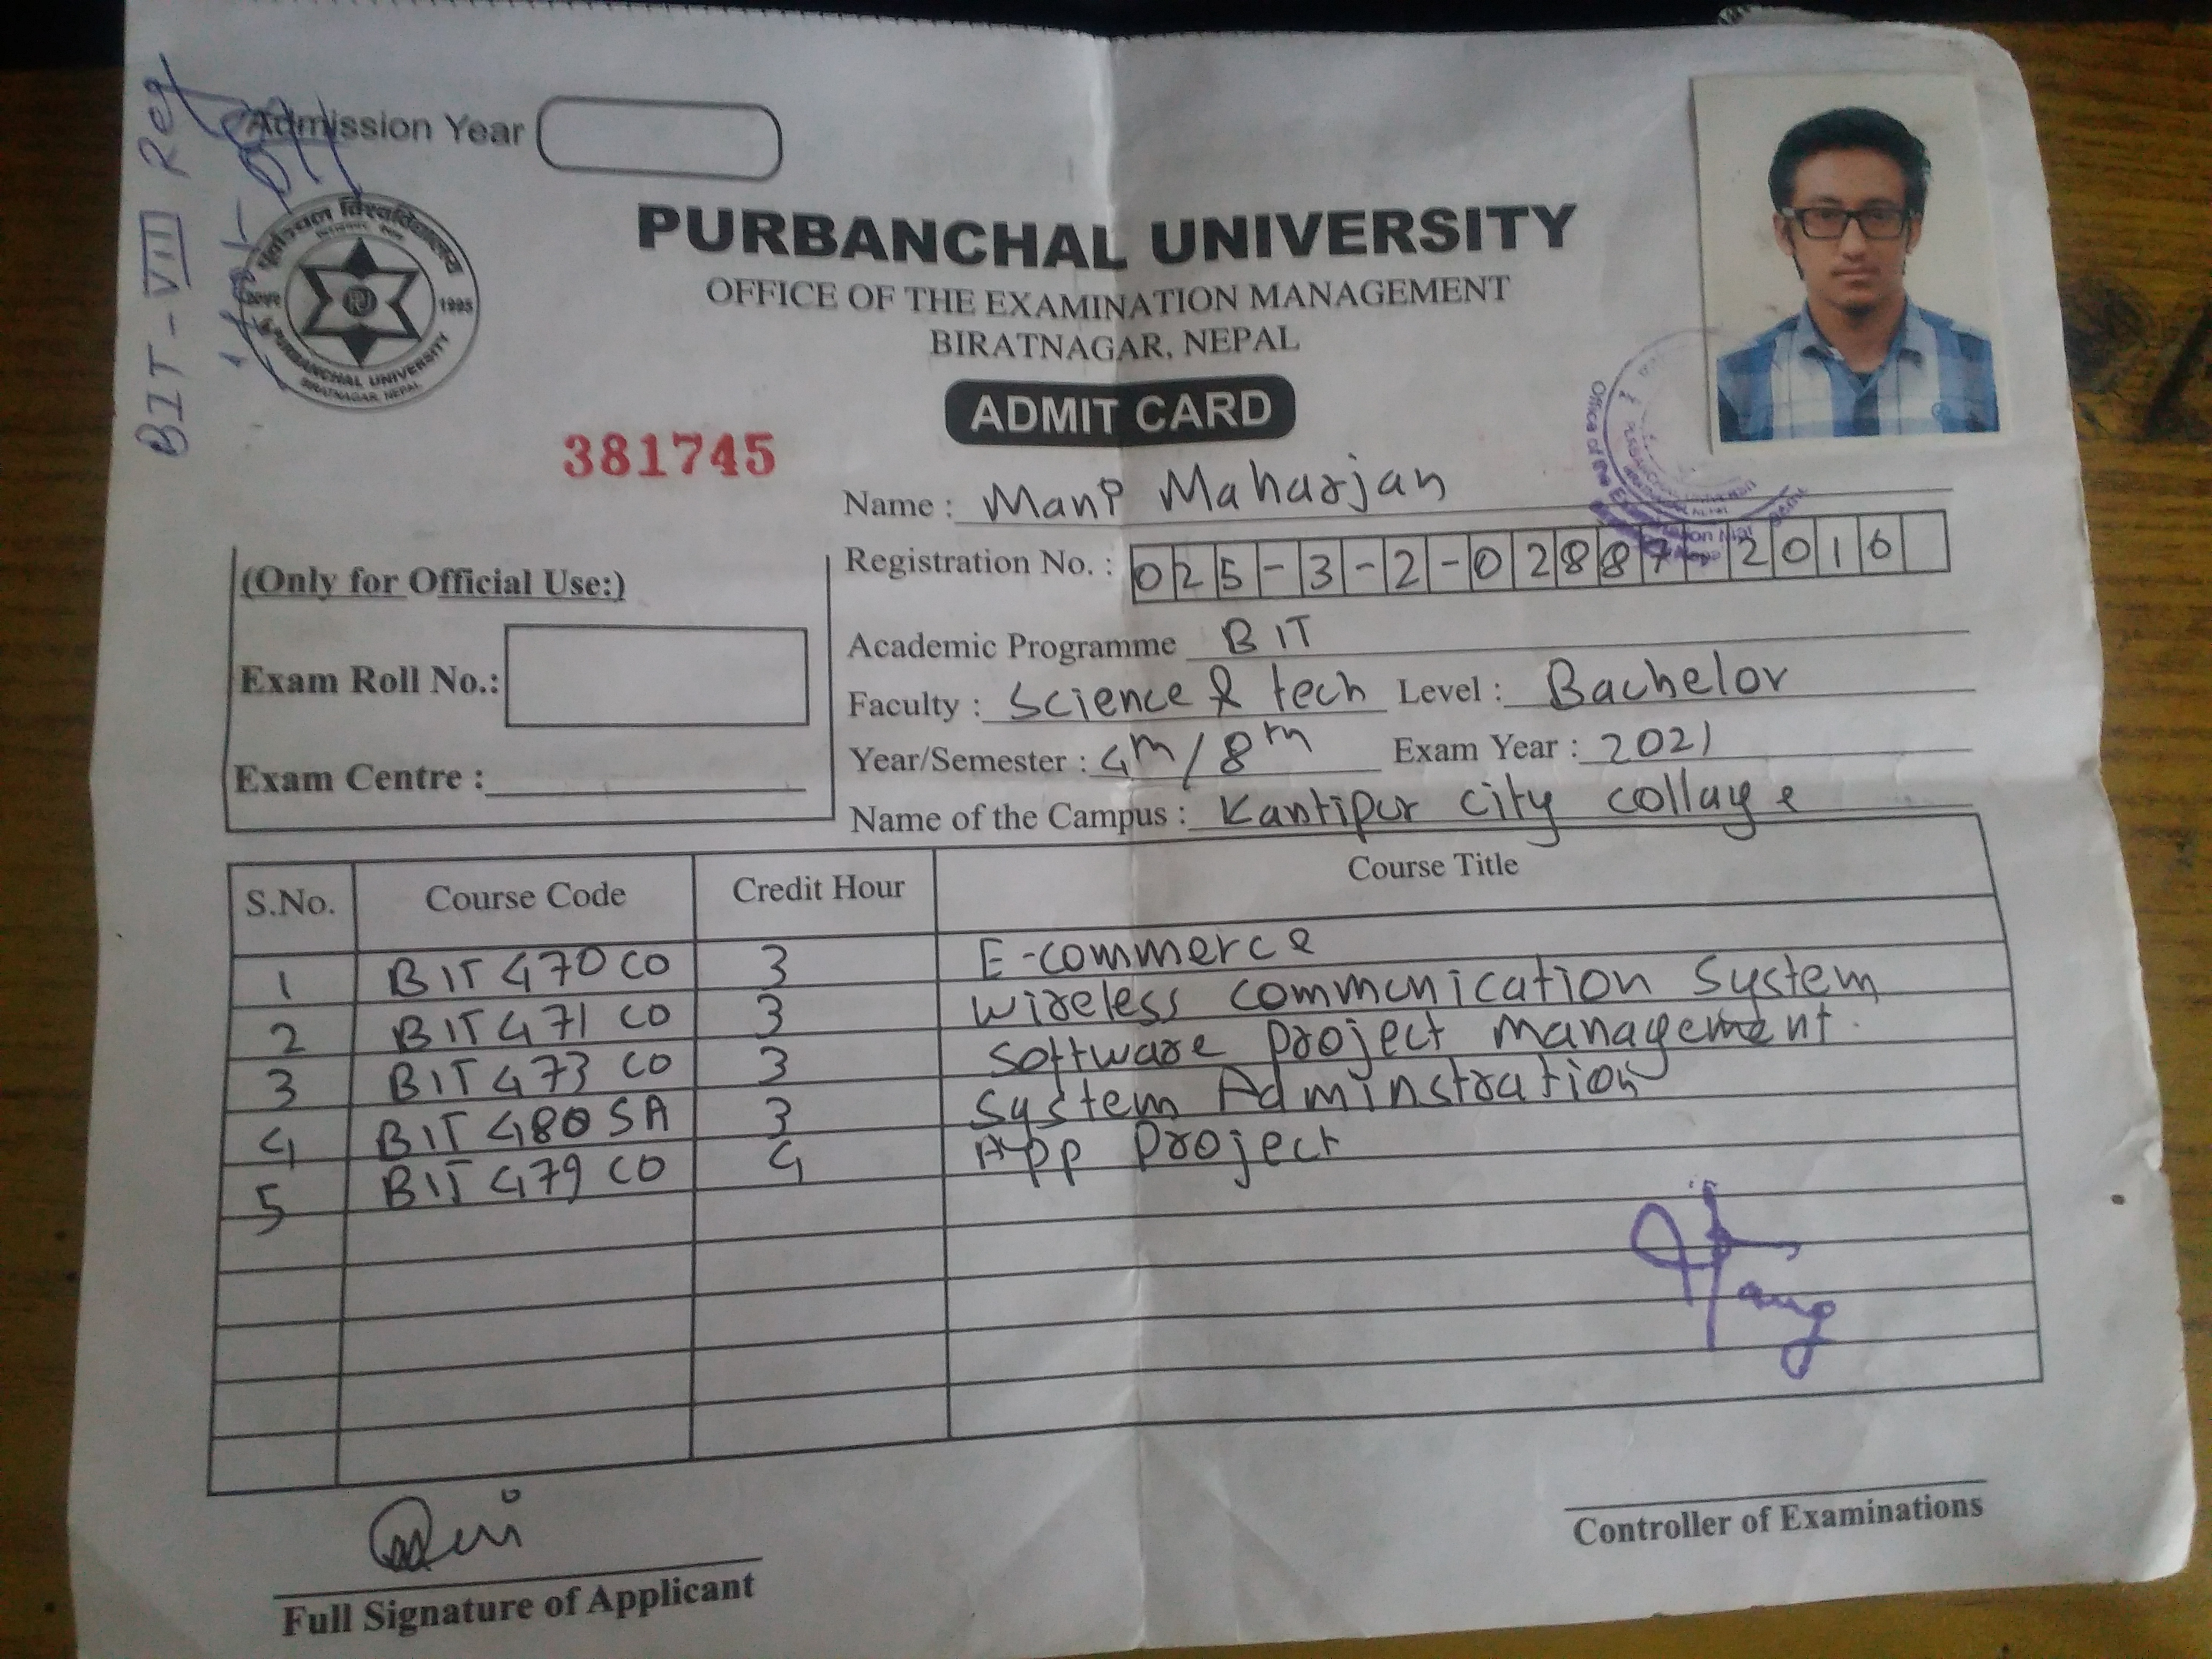 BIT-VIII Reg
Admission Year
पूर्वाञ्चल विश्वविद्यालय
1995
PURBANCHAL UNIVERSITY
BIRATNAGAR, NEPAL
PURBANCHAL UNIVERSITY
OFFICE OF THE EXAMINATION MANAGEMENT
BIRATNAGAR, NEPAL
ADMIT CARD
381745
Name : Mani Maharjan
Office of the Examination
Registration No. : 025-3-2-02887-2016
(Only for Official Use:)
Exam Roll No.:
Exam Centre :
Academic Programme BIT
Faculty : Science & tech Level : Bachelor
Year/Semester : 4th/8th Exam Year : 2021
Name of the Campus : Kantipur city collage
S.No. Course Code Credit Hour Course Title
1 BIT 470 CO 3 E-commerce
2 BIT 471 CO 3 wireless communication system
3 BIT 473 CO 3 software project management.
4 BIT 480 SA 3 System Adminstration
5 BIT 479 CO 4 App project
Full Signature of Applicant
Controller of Examinations